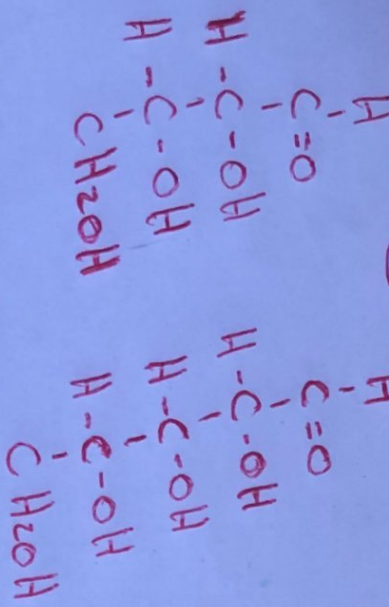 H
|
C=O
|
H-C-OH
|
H-C-OH
|
CH2OH
H
|
C=O
|
H-C-OH
|
H-C-OH
|
H-C-OH
|
CH2OH